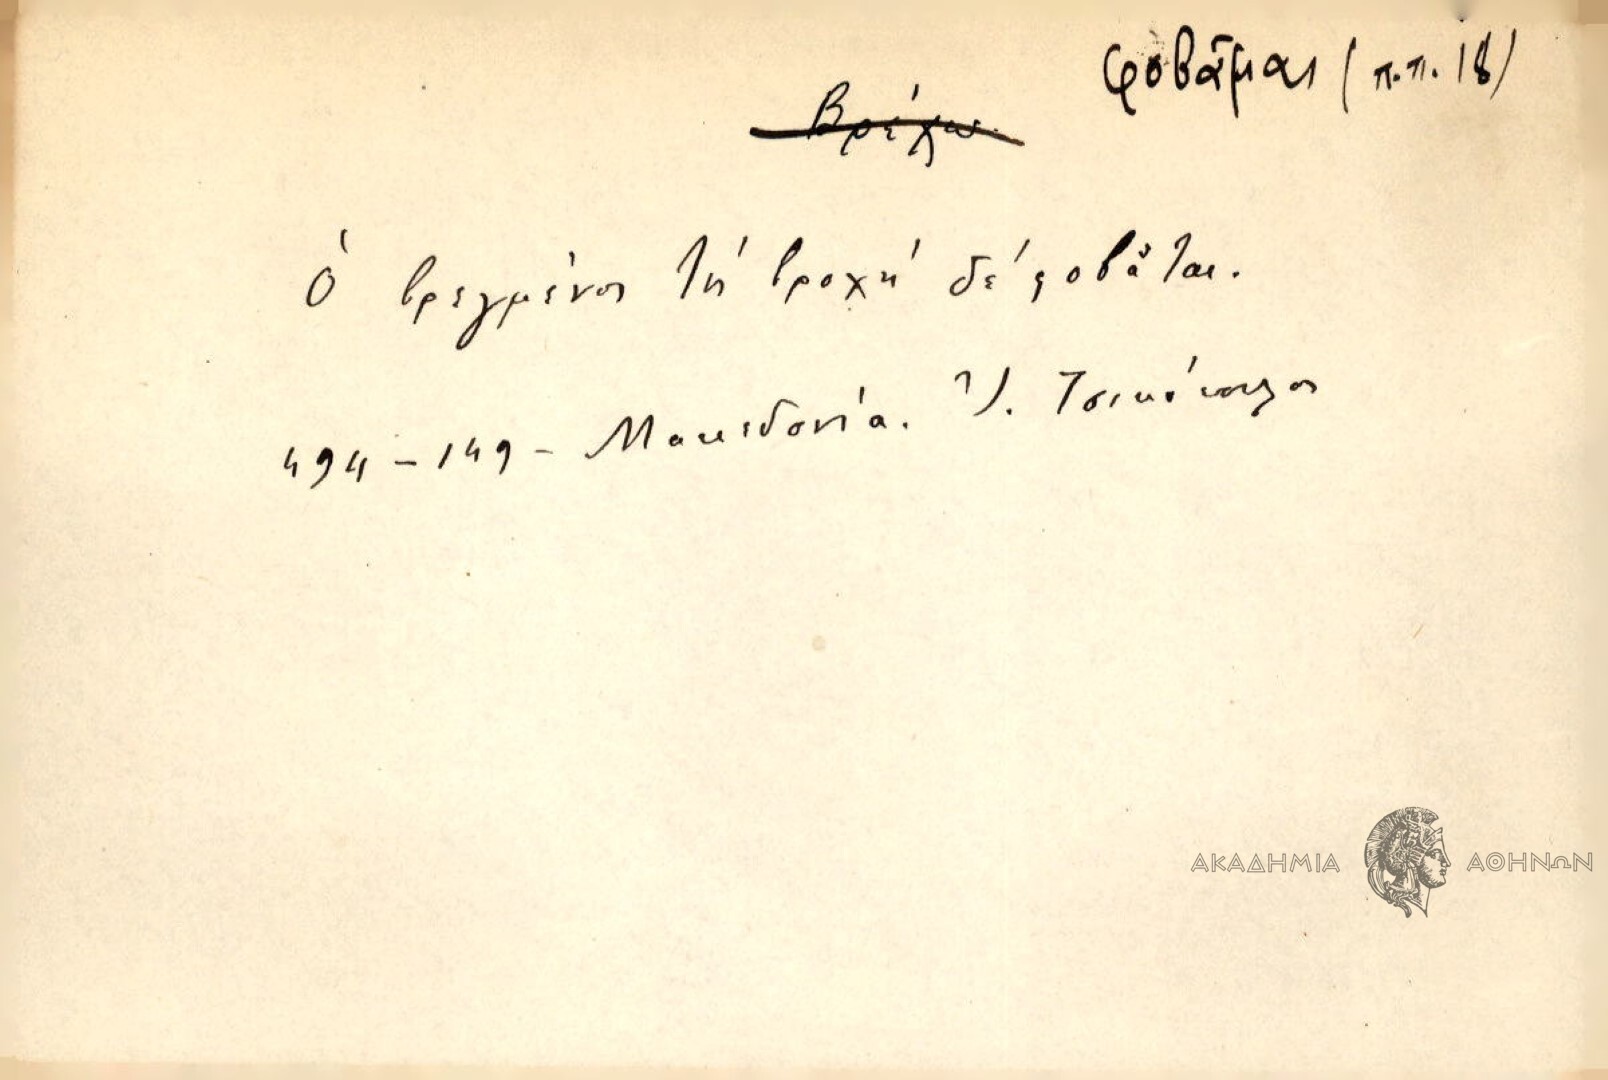 φοβᾶμαι (π.π. 18)
Βρέχω
Ὁ βρεγμένος τή βροχή δέ φοβᾶται.
494 - 149 - Μακεδονία. Ἰ. Τσικόπουλος
ΑΚΑΔΗΜΙΑ ΑΘΗΝΩΝ